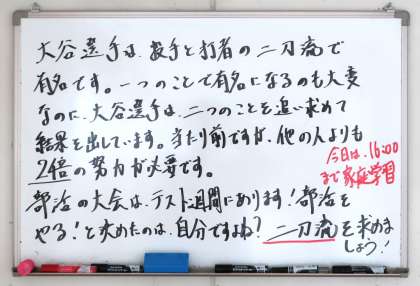 大谷選手は、投手と打者の二刀流で
有名です。一つのことで有名になるのも大変
なのに、大谷選手は、二つのことを追い求めて
結果を出しています。当たり前ですが、他の人よりも
2倍の努力が必要です。
今日は、16:00
まで家庭学習
部活の大会は、テスト週間にあります!部活を
やる!と求めたのは、自分ですよね?二刀流を求めま
しょう!